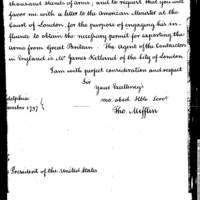 thousand stands of arms; and to request that you will
favor me with a letter to the American Minister at the
Court of London, for the purpose of engaging his in-
fluence to obtain the necessary permit for exporting the
arms from Great Britain. The Agent of the Contractors
in England is Mr. James Ketland of the City of London.
I am with perfect consideration and respect
Sir
Your Excellency's
mo. obed. Hble. Servt.
Tho. Mifflin
adelphia
ember 1797
President of the United States